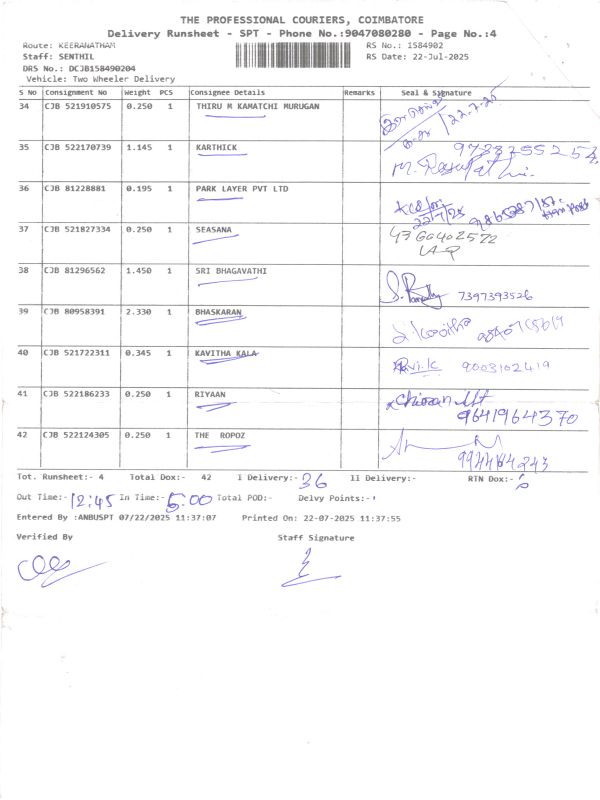 THE PROFESSIONAL COURIERS, COIMBATORE
Delivery Runsheet - SPT - Phone No.:9047080280 - Page No.:4
Route: KEERANATHAM RS No.: 1584902
Staff: SENTHIL RS Date: 22-Jul-2025
DRS No.: DCJB158490204
Vehicle: Two Wheeler Delivery
S No Consignment No Weight PCS Consignee Details Remarks Seal & Signature
34 CJB 521910575 0.250 1 THIRU M KAMATCHI MURUGAN 22.7.25
35 CJB 522170739 1.145 1 KARTHICK
36 CJB 81228881 0.195 1 PARK LAYER PVT LTD 22/7/25
37 CJB 521827334 0.250 1 SEASANA
38 CJB 81296562 1.450 1 SRI BHAGAVATHI 7397393526
39 CJB 80958391 2.330 1 BHASKARAN
40 CJB 521722311 0.345 1 KAVITHA KALA Ravi.K 9003102419
41 CJB 522186233 0.250 1 RIYAAN 9641964370
42 CJB 522124305 0.250 1 THE ROPOZ
Tot. Runsheet:- 4 Total Dox:- 42 I Delivery:- 36 II Delivery:- RTN Dox:-
Out Time:- 12:45 In Time:- 5:00 Total POD:- Delvy Points:-
Entered By :ANBUSPT 07/22/2025 11:37:07 Printed On: 22-07-2025 11:37:55
Verified By Staff Signature